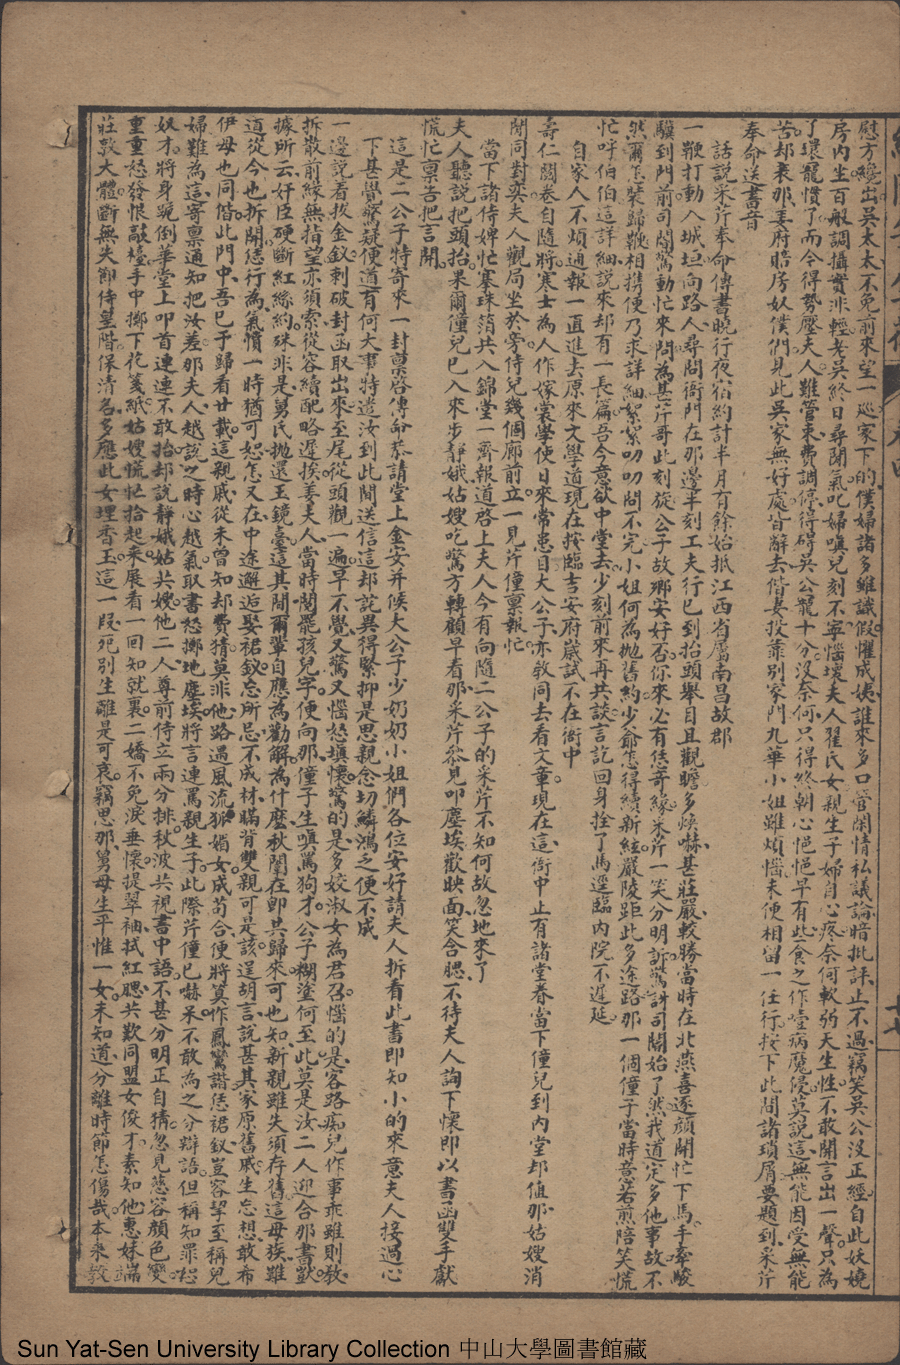 慰方纔出吳太太不免前來望一巡家下的僕婦諸多雖識假懼成姨誰來多口管閑情私議論暗批評止不過竊笑吳公沒正經自此妖嬈
房內坐百般調攝實非輕老吳終日尋閑氣叱婦嗔兒刻不寧惱壞夫人翟氏女親生子婦自心疼奈何軟弱天生性不敢開言出一聲只為
了環龍慣了而今得勢壓夫人雖管束費調停得碍吳公龍十分沒奈何只得終朝心悒悒早有些食之作噎病魔侵莫說這無能因受無能
苦却表那王府賠房奴僕們見此吳家無好處皆辭去偕妻投靠別家門九華小姐雖煩惱未便相留一任行按下此間諸瑣屑要題到采芹
奉命送書音
話說采芹奉命傳書曉行夜宿約計半月有餘始抵江西省屬南昌故郡
一鞭打動入城垣向路人尋問衙門在那邊半刻工夫行已到抬頭舉目且觀瞻多煥赫甚莊嚴較勝當時在北燕喜逐顏開忙下馬手牽駿
驥到門前司閽驚動忙來問為甚芹哥此刻旋公子故那安好否你來必有佳奇緣采芹一笑分明訴驚訝司閽始了然我道定多他事故不
然爾怎裝歸鞭相携便乃求詳細絮絮叨叨問不完小姐何為拋舊約少爺怎得續新絃嚴陵距此多途路那一個僮子當時意若煎陪笑慌
忙呼伯伯這詳細說來却有一長篇吾今意欲中堂去少刻前來再共談言訖回身拴了馬逕臨內院不遲延
自家人不煩通報一直進去原來文學道現在按臨吉安府歲試不在衙中
壽仁閱卷自隨將寒士為人作嫁裳學使日來常患目大公子亦教同去看文章現在這衙中止有諸堂眷當下僮兒到內堂却值那姑嫂消
閒同對奕夫人觀局坐於旁侍兒幾個廊前立一見芹僮禀報忙
當下諸侍婢忙搴珠箔共入錦堂一齊報道啓上夫人今有向隨二公子的采芹不知何故忽地來了
夫人聽說把頭抬果爾僮兒已入來步靜娥姑嫂吃驚方轉顧早看那采芹忩見叩塵埃歡映面笑含腮不待夫人詢下懷即以書函雙手獻
慌忙禀告把言開
這是二公子特寄來一封禀啓傳命恭請堂上金安并候大公子少奶奶小姐們各位安好請夫人拆看此書即知小的來意夫人接過心
下甚覺驚疑便道有何大事特遣汝到此間送信這却詫異得緊抑是思親念切鱗鴻之便不成
一邊說看拔金釵刺破封函取出來至尾從頭觀一遍早不覺又驚又惱怒填懷驚的是多姣淑女為君召惱的是客路痴兒作事乖雖則敎
拆散前緣無指望亦須索從容續配略遲挨姜夫人當時閱罷孩兒字便向那僮子生嗔罵狗才公子糊塗何至此莫是汝二人迎合那書獃
據所云奸臣硬斷紅絲約殊非是舅氏拋還玉鏡臺這其間爾輩自應為勸解為什麼秋闈在即其歸來可也知新親雖失須存舊這母族雖
道從今也拆開恁行為氣憤一時猶可恕怎又在中途邂逅娶裙釵忘所忌不成材瞞背雙親可是該逞胡言說甚其家原舊戚生忘想敢希
伊母也同偕此門中吾已于歸看廿載這親戚從未曾知却費猜莫非他路遇風流孤媚女成苟合便將箕作鳳鸞諧恁裙釵豈容挈至稱兒
婦難為這寄禀通知把汝差那夫人越說之時心越氣取書怒擲地塵埃將言連罵親生子此際芹僮已嚇呆不敢為之分辯語但稱知罪恕
奴才將身跪倒華堂上叩首連連不敢抬却說靜娥姑共嫂他二人尊前侍立兩分排秋波共視書中語不甚分明正自猜忽見慈容顏色變
重重怒發恨敲檯手中擲下花箋紙姑嫂慌忙拾起來展看一回知就裏二嬌不免淚垂懷提翠袖拭紅腮共歎同盟女俊才素知他惠妹端
莊敦大體斷無失節侍皇階保清名多應此女埋香玉這一段死別生離是可哀竊思那舅母生平惟一女未知道分離時節怎傷哉本來敎
Sun Yat-Sen University Library Collection 中山大學圖書館藏